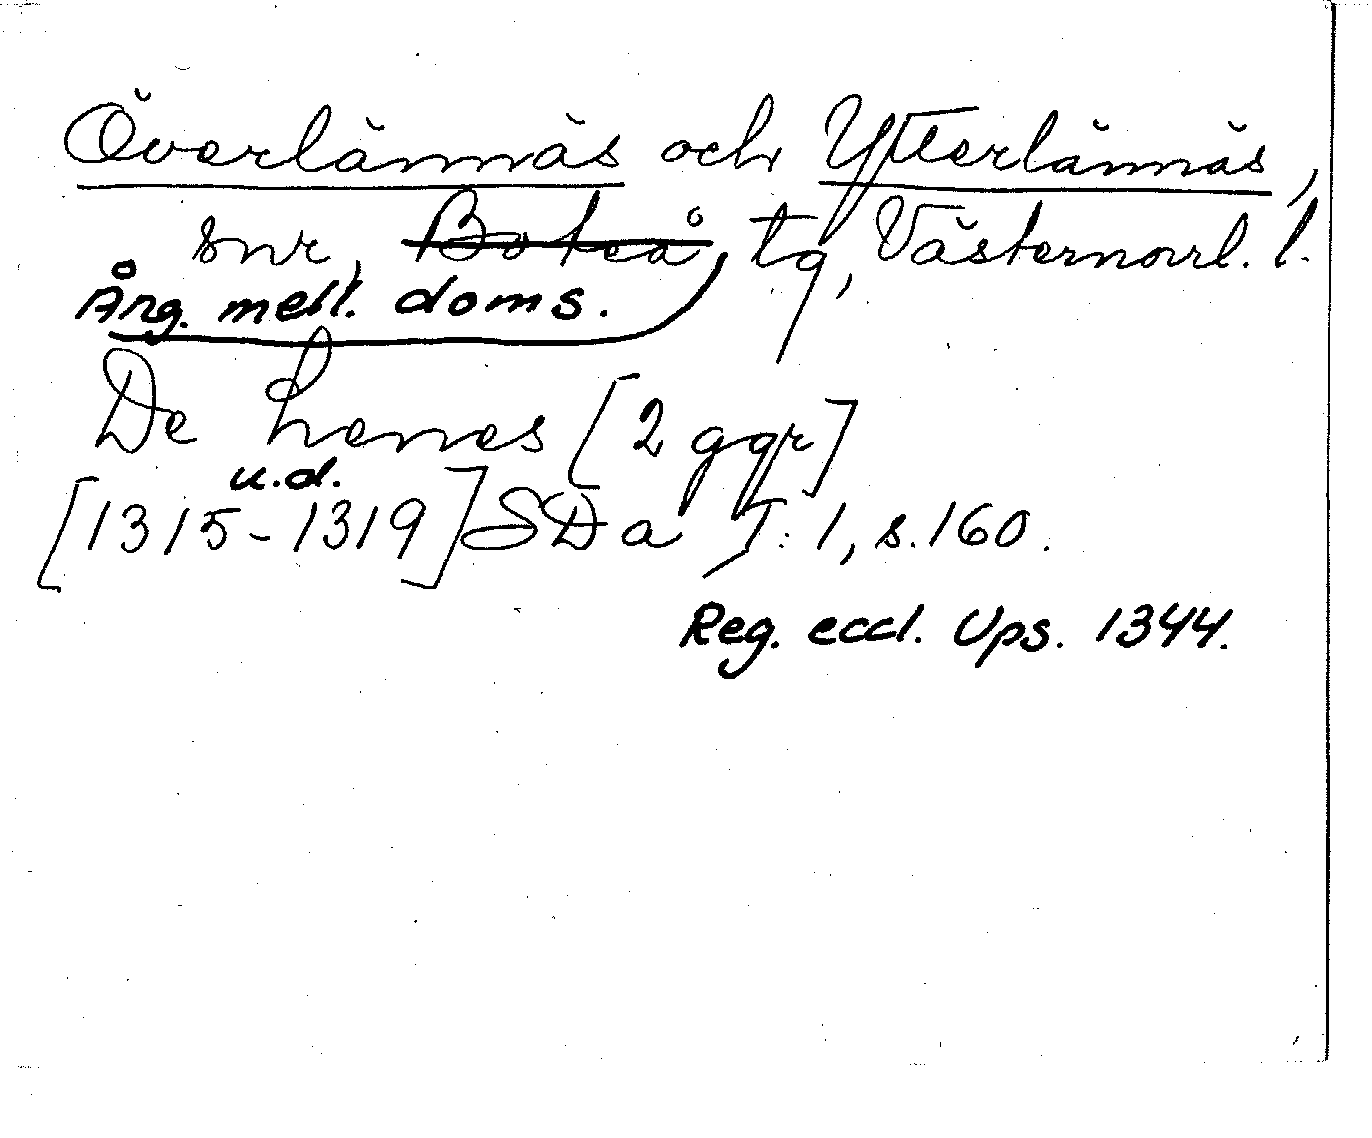 Överlännäs och Ytterlännäs,
snr, Boteå tg, Västernorrl. l.
Ång. mell. doms.
De henes [2 ggr]
u.d.
[1315-1319] SDa I: 1, s. 160.
Reg. eccl. Ups. 1344.